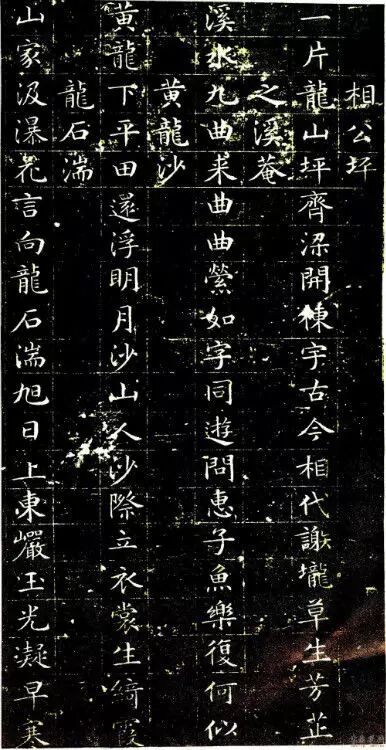 相公坪
一片龍山坪齊梁開棟宇古今相代謝壠草生芳芷
之溪菴
溪水九曲来曲曲縈如字同遊問惠子魚樂復何似
黄龍沙
黄龍下平田遥浮明月沙山人沙際立衣裳生綺霞
龍石湍
山家汲瀑花言向龍石湍旭日上東巖玉光凝早寒